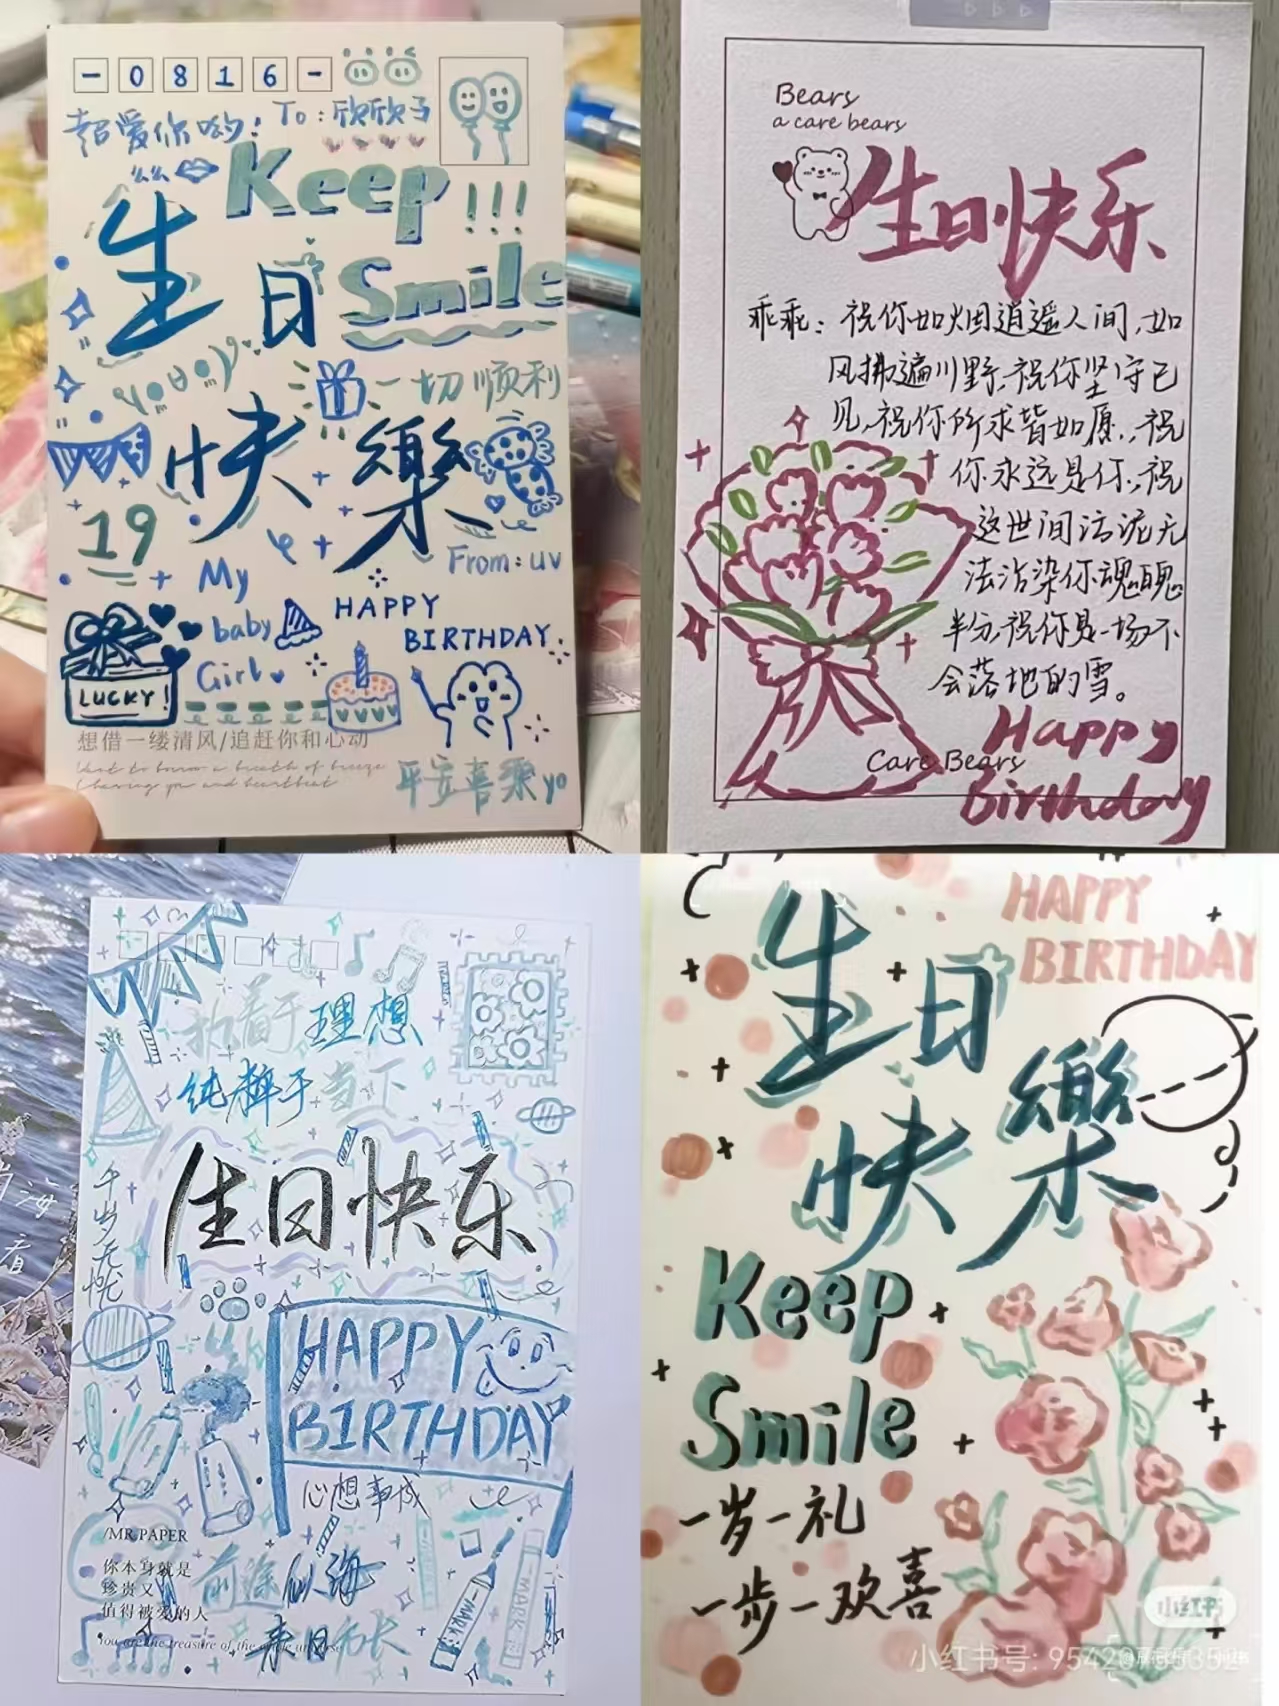 - 0 8 1 6 -
超爱你哟!
To：欣欣子
么么
Keep !!!
Smile
生日
快樂
一切顺利
19
My
baby
Girl
From：uv
HAPPY
BIRTHDAY.
LUCKY!
想借一缕清风/追赶你和心动
Want to borrow a breath of breeze
Chasing you and heartbeat
平安喜乐yo
Bears
a care bears
生日快乐
乖乖：祝你如烟逍遥人间，如
风拂遍川野，祝你坚守己
见，祝你所求皆如愿，祝
你永远是你，祝
这世间污泥无
法沾染你魂魄
半分，祝你是一场不
会落地的雪。
Care Bears
Happy
Birthday
执着于理想
纯粹于当下
生日快乐
千岁无忧
HAPPY
BIRTHDAY
心想事成
/MR.PAPER
你本身就是
珍贵又
值得被爱的人
You are the treasure of the whole universe
前途似海
来日方长
MARK
HAPPY
BIRTHDAY
生日
快樂
Keep
Smile
一岁一礼
一步一欢喜
小红书